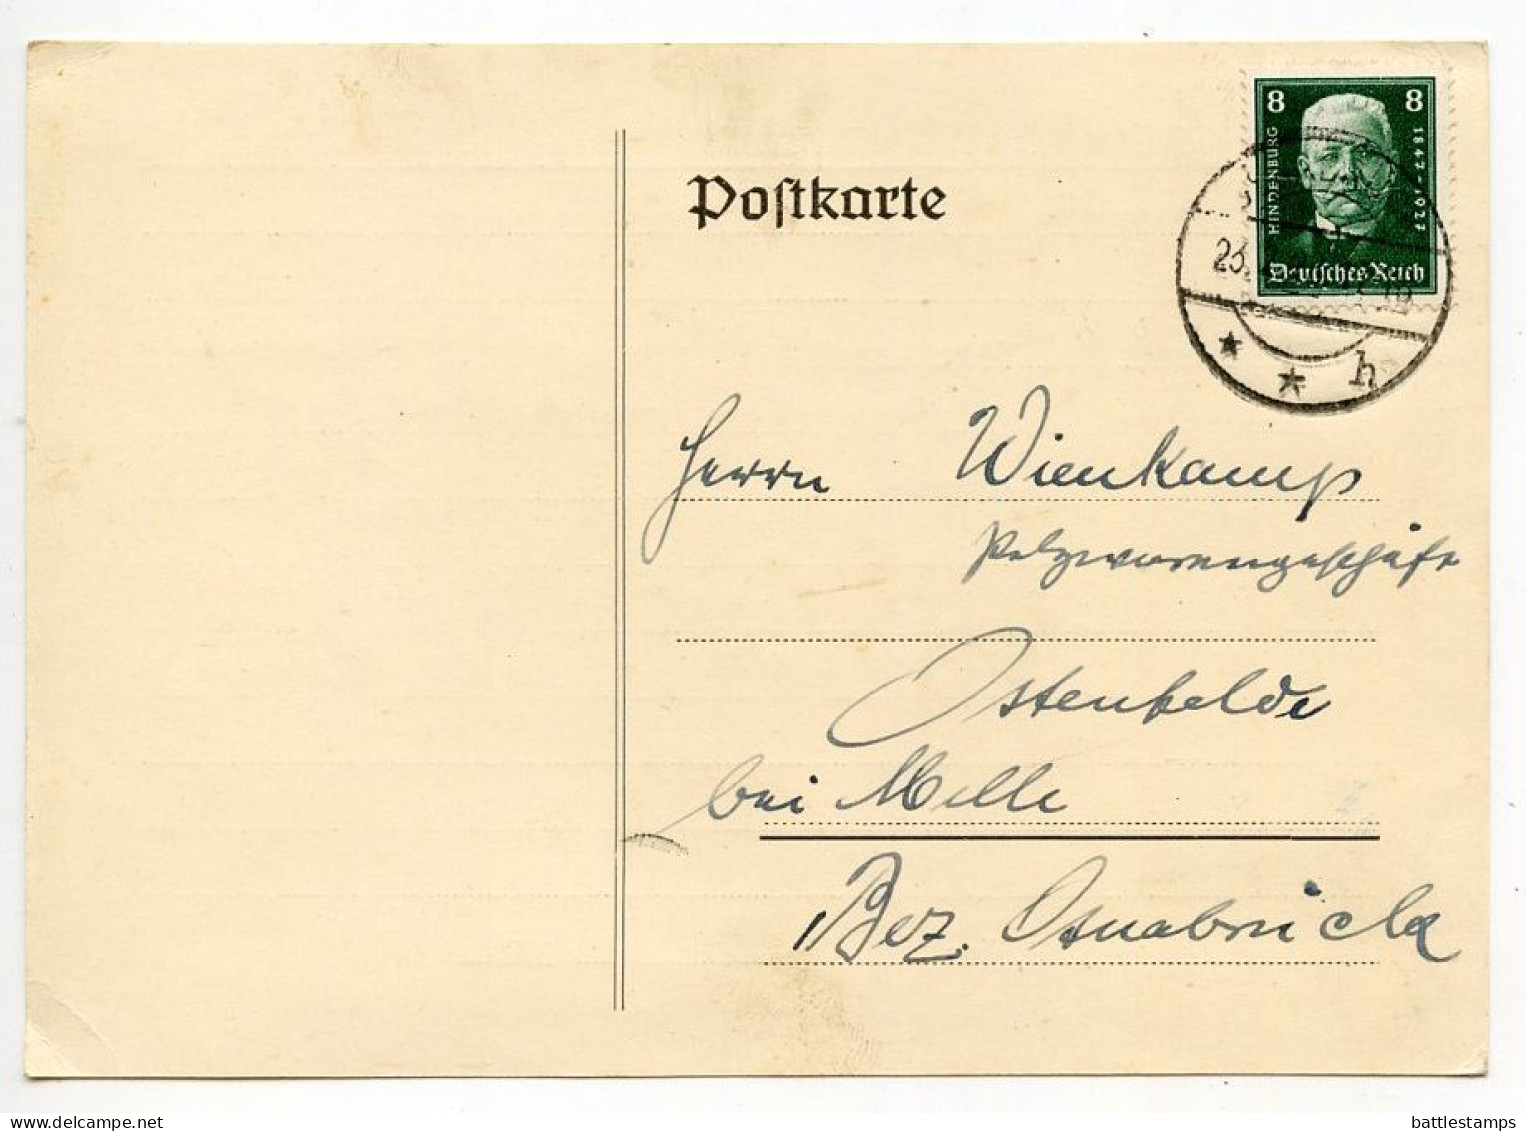 Postkarte
8 8
HINDENBURG
1847-1927
Deutsches Reich
23.
h
Herrn Wienkamp
Pelzwarengeschäft
Ostenfelde
bei Melle
Bez. Osnabrück
my.delcampe.net
battlestamps